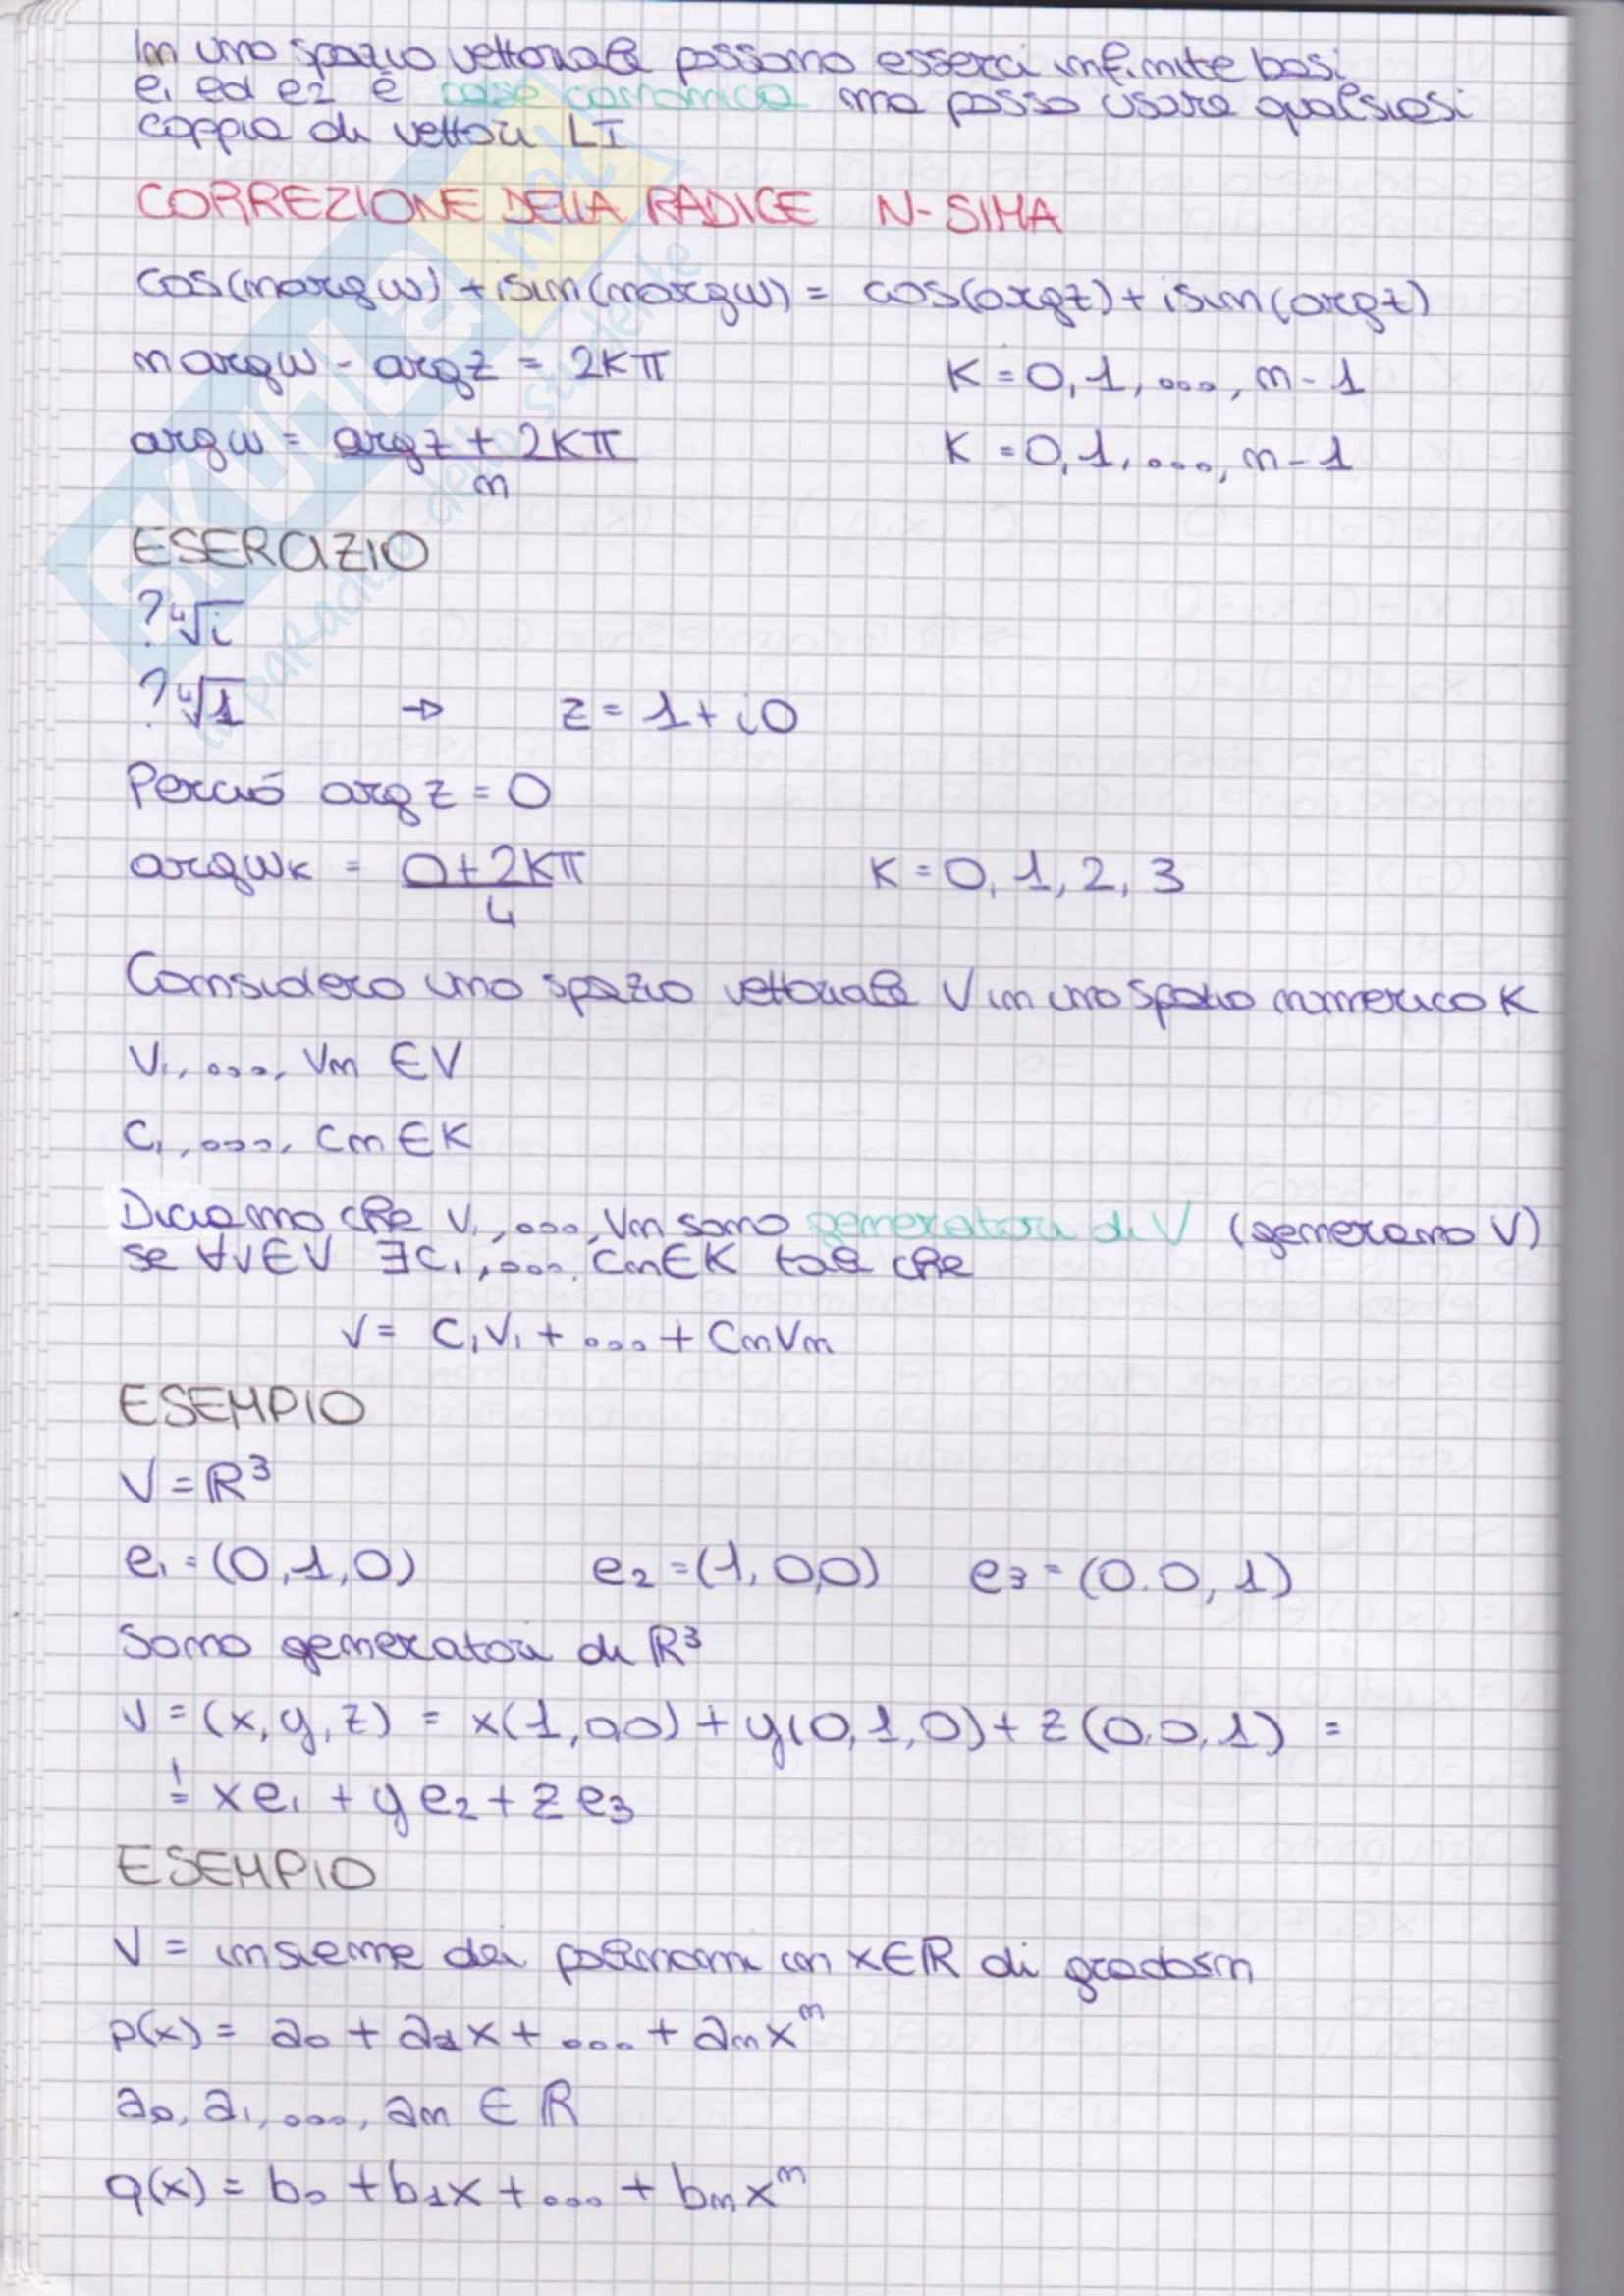 In uno spazio vettoriale possono esserci infinite basi
e₁ ed e₂ è base canonica ma posso usare qualsiasi
coppia di vettori LI
CORREZIONE DELLA RADICE N-SIMA
cos(n arg w) + i sin(n arg w) = cos(arg z) + i sin(arg z)
n arg w - arg z = 2kπ K = 0, 1, ..., n-1
arg w = (arg z + 2kπ)/n K = 0, 1, ..., n-1
ESERCIZIO
? ⁴√i
? ⁴√1 → z = 1 + i0
Perció arg z = 0
arg wₖ = (0 + 2kπ)/4 K = 0, 1, 2, 3
Considero uno spazio vettoriale V in uno spazio numerico K
V₁, ..., Vn ∈ V
C₁, ..., Cn ∈ K
Diciamo che V₁, ..., Vn sono generatori di V (generano V)
se ∀v∈V ∃C₁, ..., Cn∈K tale che
V = C₁V₁ + ... + CnVn
ESEMPIO
V = ℝ³
e₁ = (0,1,0) e₂ = (1,0,0) e₃ = (0.0,1)
Sono generatori di ℝ³
V = (x, y, z) = x(1,0,0) + y(0,1,0) + z(0,0,1) =
= xe₁ + ye₂ + ze₃
ESEMPIO
V = insieme dei polinomi in x∈ℝ di grado≤n
p(x) = a₀ + a₁x + ... + anxⁿ
a₀, a₁, ..., an ∈ ℝ
q(x) = b₀ + b₁x + ... + bnxⁿ
SKUOLA.net
il paradiso dello studente